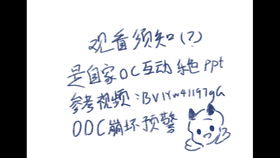 观看须知(?)
是自家OC互动 第色ppt
参考视频:BV1Yw41197gG
OOC崩坏预警